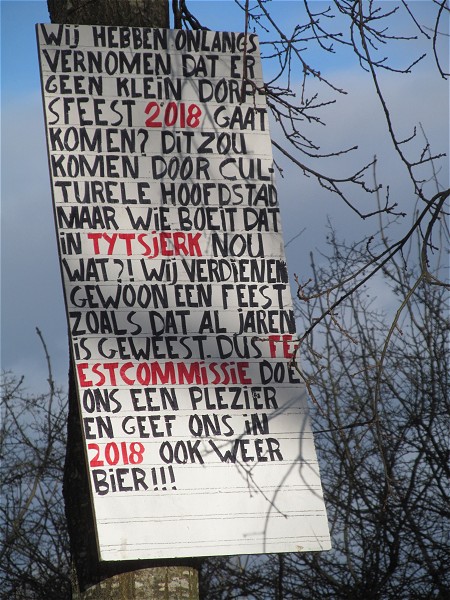 Wij HEBBEN ONLANGS
VERNOMEN DAT ER
GEEN KLEIN DORP
SFEEST 2018 GAAT
KOMEN? DIT ZOU
KOMEN DOOR CUL-
TURELE HOOFDSTAD
MAAR WIE BOEIT DAT
iN TYTSJERK NOU
WAT?! WIJ VERDIENEN
GEWOON EEN FEEST
ZOALS DAT AL JAREN
iS GEWEEST. DUS FE
ESTCOMMISSIE DOE
ONS EEN PLEZIER
EN GEEF ONS iN
2018 OOK WEER
BiER!!!